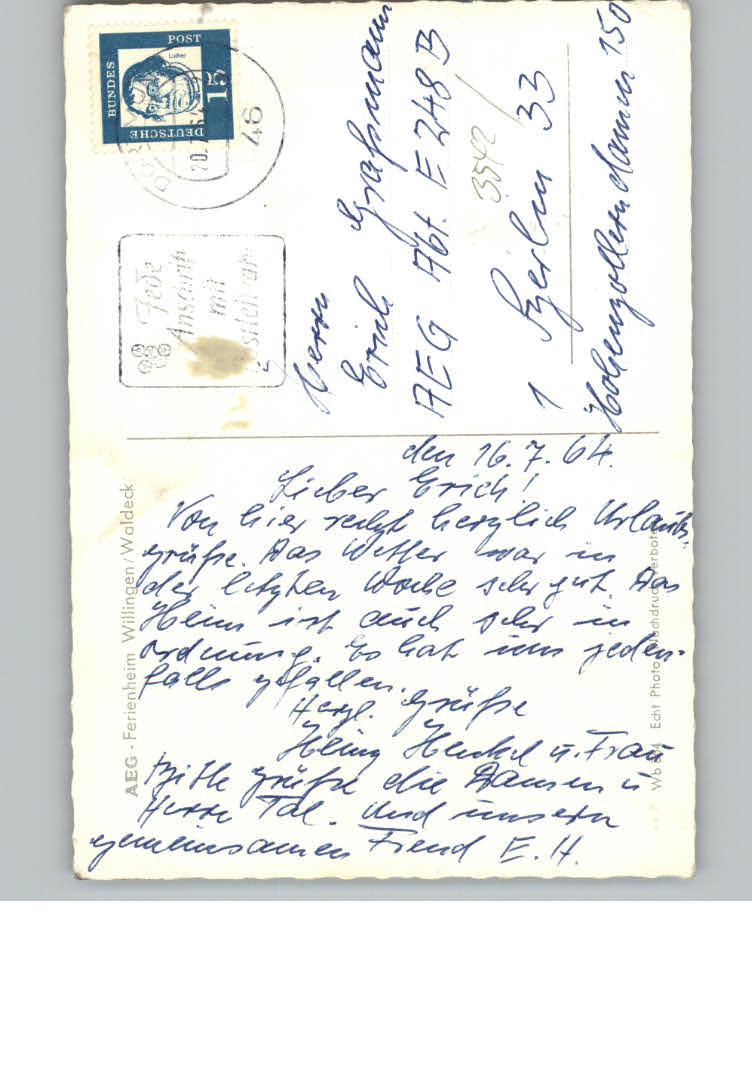 DEUTSCHE
BUNDES
POST
Luther
15
20.7.64
46
Jede
Anschrift
mit
Postleitzahl
Herrn
Erich Graßmann
AEG Abt. E 248 B
3542
1 Berlin 33
Hohenzollerndamm 150
AEG - Ferienheim Willingen/Waldeck
den 16.7.64.
Lieber Erich!
Von hier recht herzlich Urlaubs-
grüße. Das Wetter war in
der letzten Woche sehr gut. Das
Heim ist auch sehr in
Ordnung. Es hat uns jeden-
falls gefallen.
Herzl. Grüße
Heinz Henkel u. Frau
Bitte grüße die Damen u
Herrn Tal. und unsern
gemeinsamen Freund E. H.
Echt Photo Nachdruck verboten